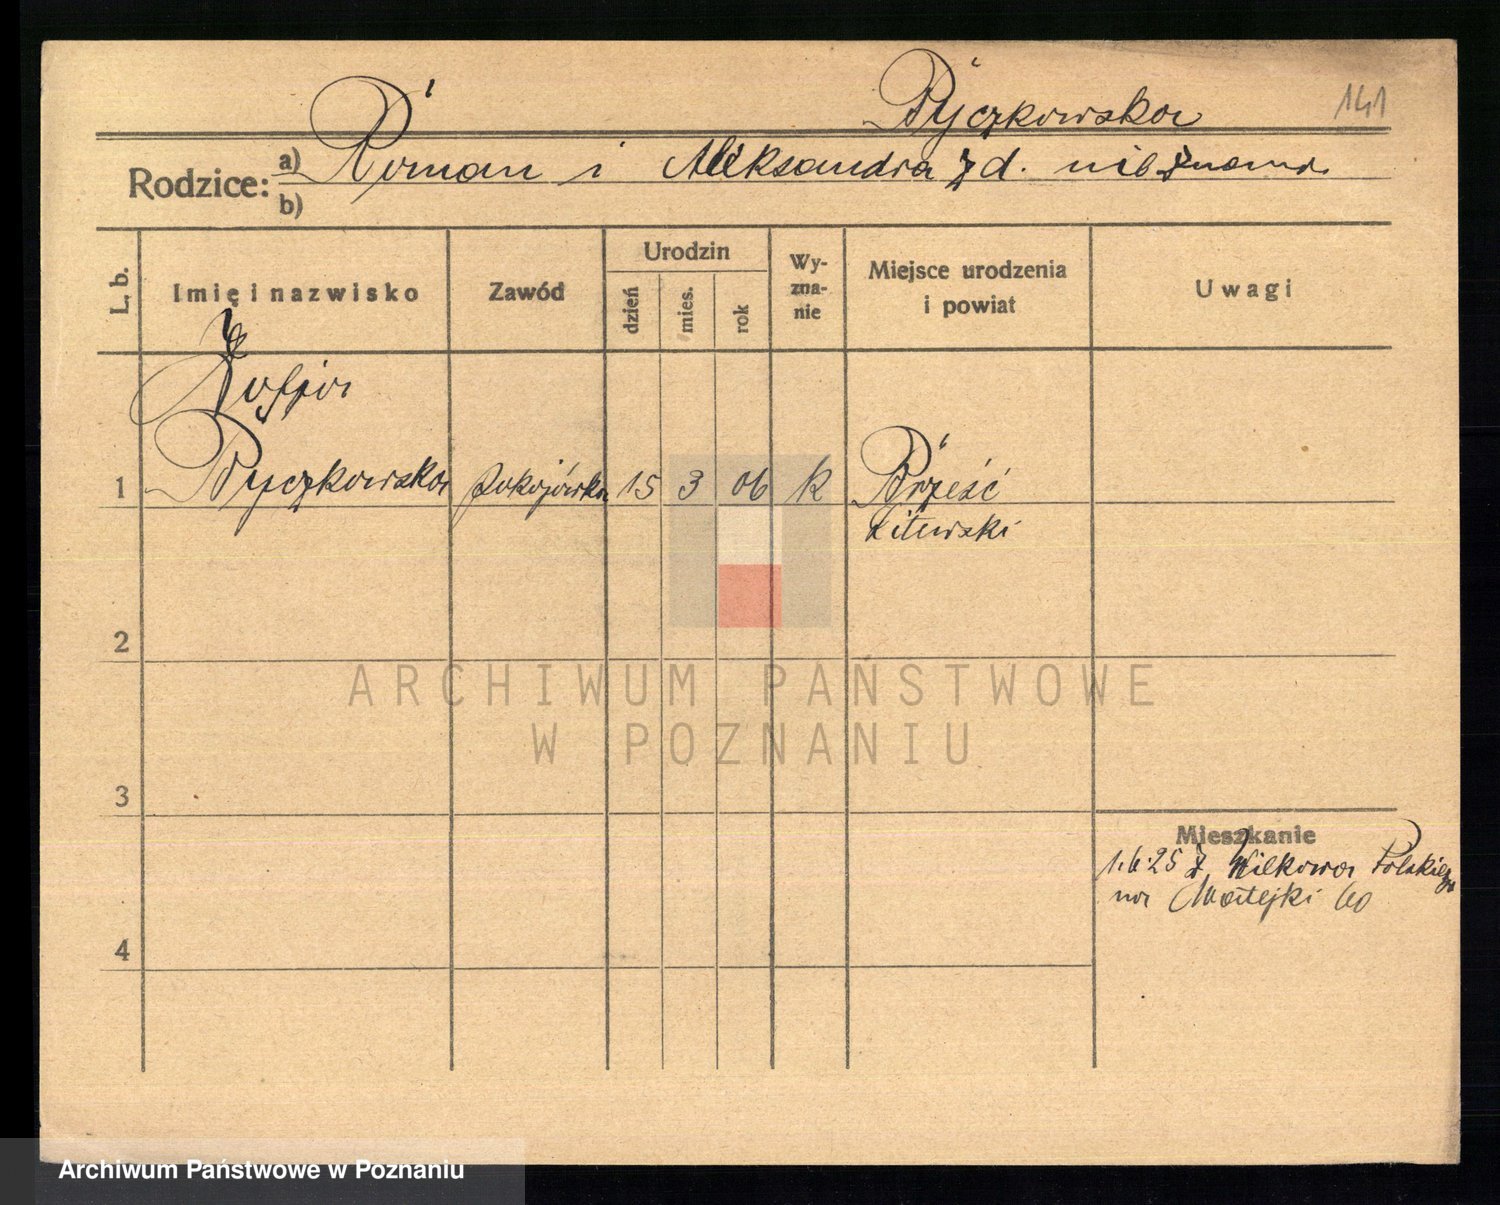 Pyczkowska
141
Rodzice:
a) Roman i Aleksandra z d. nieznana
b)
L. b.
Imię i nazwisko
Zawód
Urodzin
dzień
mies.
rok
Wy-
zna-
nie
Miejsce urodzenia
i powiat
Uwagi
Zofja
1 Pyczkowska pokojówka 15 3 06 k Brześć
Litewski
2
ARCHIWUM PAŃSTWOWE
W POZNANIU
3
Mieszkanie
1.6.25 z Wilkowa Polskiego
na Matejki 60
4
Archiwum Państwowe w Poznaniu